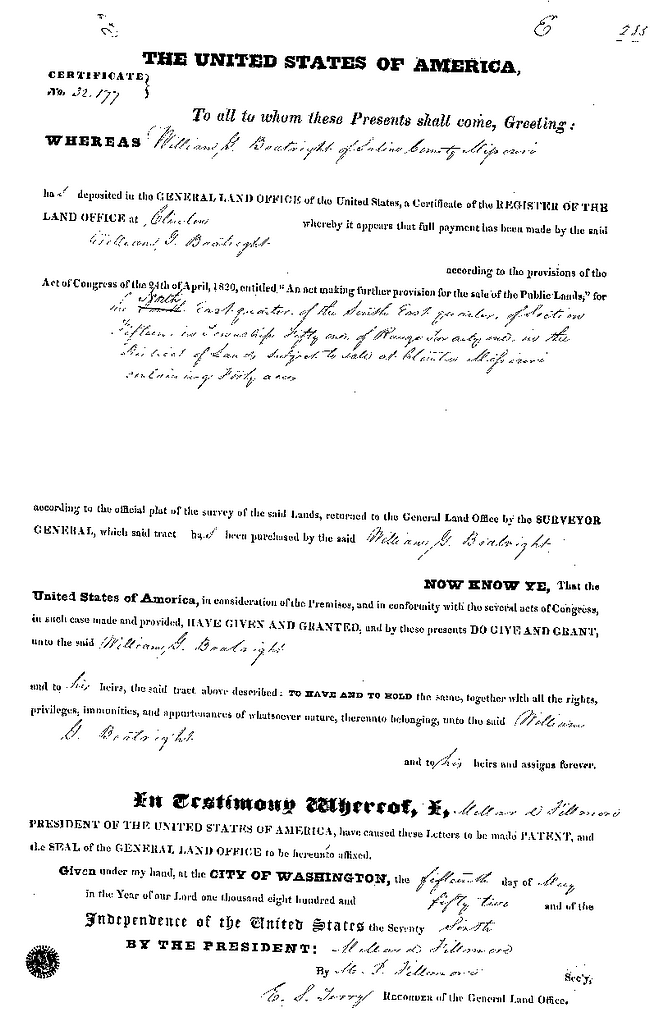 E 235
THE UNITED STATES OF AMERICA,
CERTIFICATE
No. 32.177
To all to whom these Presents shall come, Greeting:
WHEREAS William G. Boatright of Saline County Missouri
ha s deposited in the GENERAL LAND OFFICE of the United States, a Certificate of the REGISTER OF THE
LAND OFFICE at Clinton whereby it appears that full payment has been made by the said
William G. Boatright
according to the provisions of the
Act of Congress of the 24th of April, 1820, entitled "An act making further provision for the sale of the Public Lands," for
North
the East quarter, of the South East quarter, of Section
Fifteen, in Township Fifty one, of Range Twenty one, in the
District of Lands subject to sale at Clinton Missouri
containing Forty acres
according to the official plat of the survey of the said Lands, returned to the General Land Office by the SURVEYOR
GENERAL, which said tract ha s been purchased by the said William G. Boatright
NOW KNOW YE, That the
United States of America, in consideration of the Premises, and in conformity with the several acts of Congress,
in such case made and provided, HAVE GIVEN AND GRANTED, and by these presents DO GIVE AND GRANT,
unto the said William G. Boatright
and to his heirs, the said tract above described: TO HAVE AND TO HOLD the same, together with all the rights,
privileges, immunities, and appurtenances of whatsoever nature, thereunto belonging, unto the said William
G. Boatright
and to his heirs and assigns forever.
In Testimony Whereof, I, Millard Fillmore
PRESIDENT OF THE UNITED STATES OF AMERICA, have caused these Letters to be made PATENT, and
the SEAL of the GENERAL LAND OFFICE to be hereunto affixed.
Given under my hand, at the CITY OF WASHINGTON, the fifteenth day of May
in the Year of our Lord one thousand eight hundred and fifty two and of the
Independence of the United States the Seventy Sixth
BY THE PRESIDENT: Millard Fillmore
By M. P. Fillmore Sec'y.
E. S. Terry RECORDER of the General Land Office.